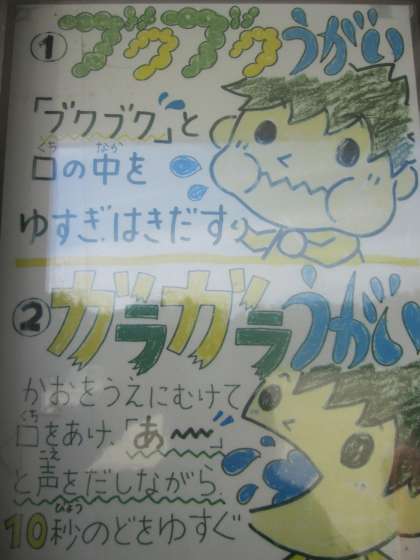 ① ブクブクうがい
「ブクブク」と
口の中を
ゆすぎ、はきだす。
② ガラガラうがい
かおをうえにむけて
口をあけ、「あ〜〜」
と声をだしながら、
10秒のどをゆすぐ